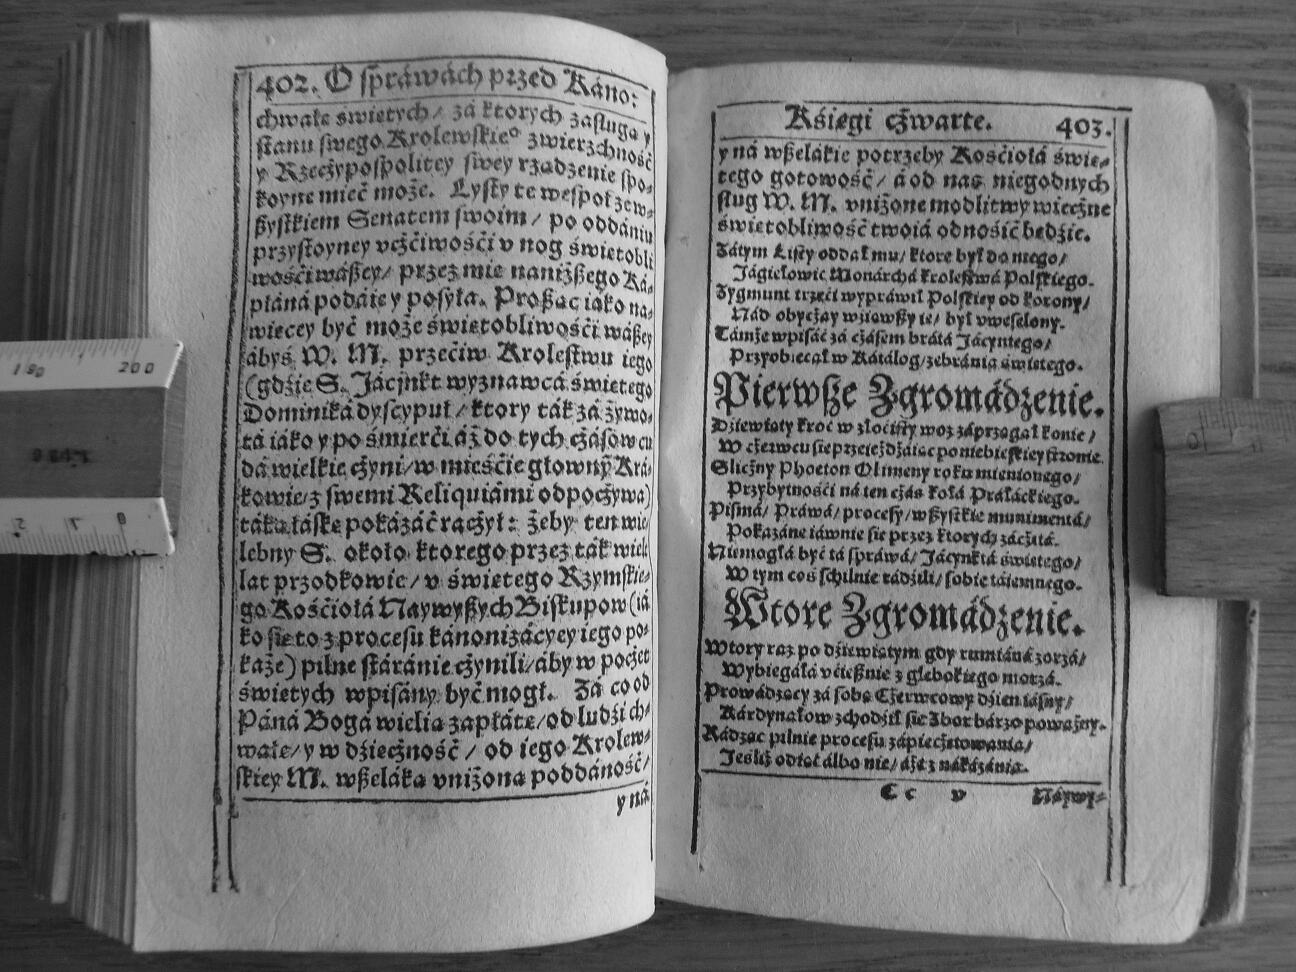 402. O spráwách przed Káno:
chwałe świetych / zá ktorych zasługą y
stanu swego Krolewskieº zwierzchność
y Rzeczypospolitey swey rządzenie spo-
koyne mieć może. Lysty te wespoł zew-
szystkiem Senatem swoim / po oddániu
przystoyney vczćiwośći v nog świetobli
wośći wászey / przez mie naniższego Ká-
płáná podáie y posyła. Prosząc iáko na-
wiecey być może świetobliwośći wászey
ábyś W. M. przećiw Krolestwu iego
(gdźie S. Jácynkt wyznawcá świetego
Dominiká dyscypuł / ktory ták zá żywo-
tá iáko y po śmierći áż do tych czásow cu
dá wielkie czyni / w mieśćie głowny Krá-
kowie / z swemi Reliquiámi odpoczywa)
táką łáskę pokázáć raczył: żeby ten wie
lebny S. około ktorego przez ták wiele
lat przodkowie / v świetego Rzymskie-
go Kośćiołá Naywyższych Biskupow (iá
ko sie to z procesu kánonizácyey iego po-
każe) pilne stáránie czynili / áby w poczet
świetych wpisány być mogł. Zá co od
Páná Bogá wielią zapłátę / od ludźi ch-
wałe / y w dźieczność / od iego Krolew-
skiey M. wszeláka vniżona poddáność /
y ná
Kśięgi czwarte. 403.
y ná wszelákie potrzeby Kośćiołá świe-
tego gotowość / á od nas niegodnych
sług W. M. vniżone modlitwy wieczne
świetobliwość twoiá odnośić będźie.
Zátym Listy oddał mu / ktore był do niego /
Jágielowic Monárchá krolestwá Polskiego.
Zygmunt trzeći wypráwił Polskiey od korony /
Nád obyczay wźiąwszy ie / był vweselony.
Támże wpisáć zá czásem brátá Jácyntego /
Przyobiecał w Kátálog / zebránia świetego.
Pierwsze Zgromádzenie.
Dźiewiąty kroć w złoćisty woz záprzągał konie /
W czerwcu sie przeieżdżáiąc po niebieskiey stronie.
Sliczny Phoeton Olimeny roku mienionego /
Przybytnośći ná ten czás kołá Práłáckiego.
Pismá / Práwá / procesy / wszystkie munimentá /
Pokazáne iáwnie sie przez ktorych záczętá.
Niemogłá być tá spráwá / Jácynktá świetego /
W tym coś schilnie rádźili / sobie táiemnego.
Wtore Zgromádzenie.
Wtory raz po dźiewiątym gdy rumiáná zorzá /
Wybiegáłá vćiesznie z głebokiego morzá.
Prowádzący zá sobą Czerwcowy dźień iásny /
Kárdynałow zchodźił sie Zbor bárzo poważny.
Rádząc pilnie procesu zápieczętowánia /
Jesliż odiął álbo nie / áże z nákázánia.
Cc v Naywy-